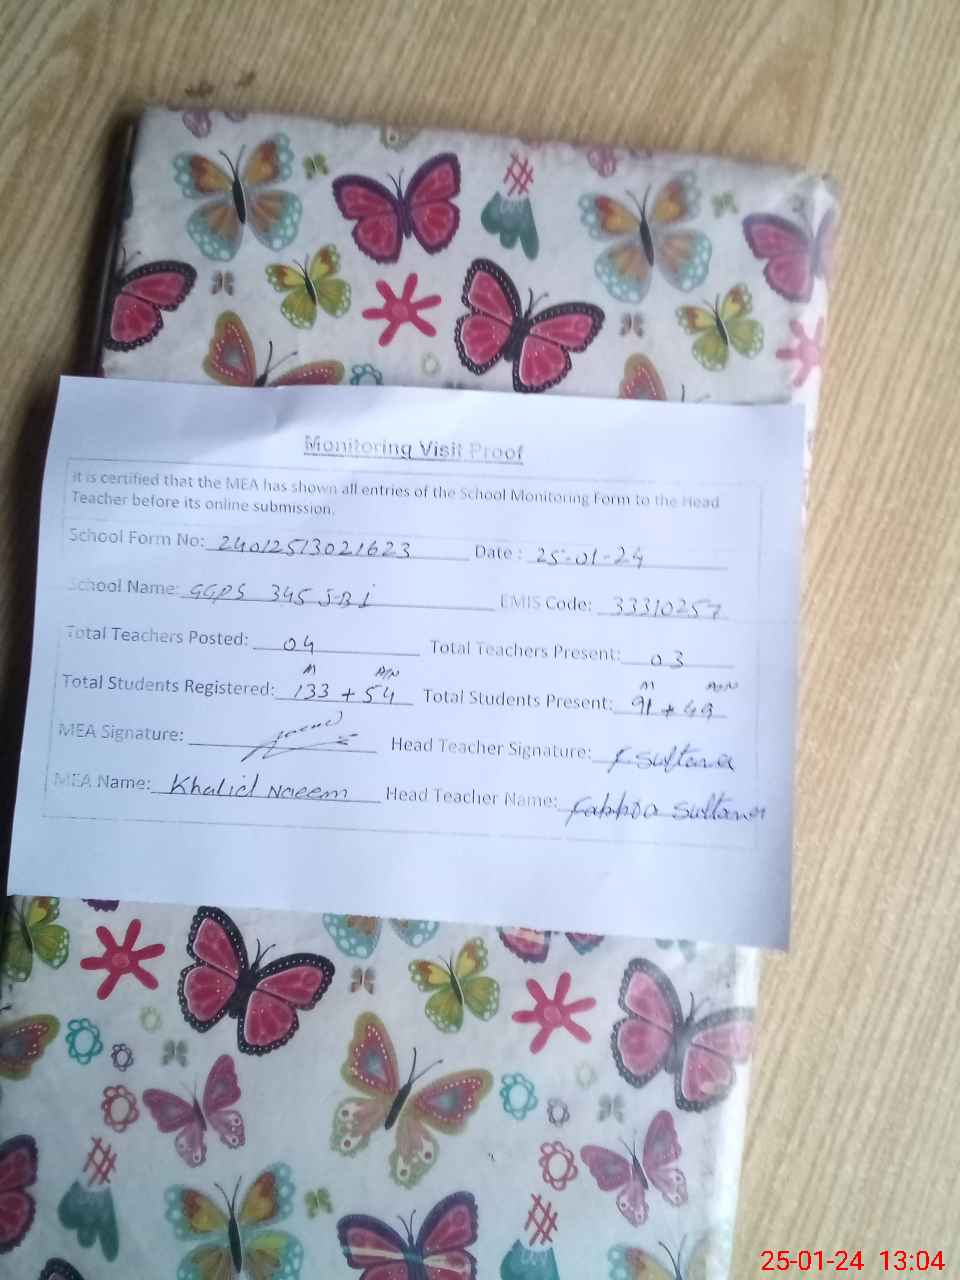 Monitoring Visit Proof
it is certified that the MEA has shown all entries of the School Monitoring Form to the Head
Teacher before its online submission.
School Form No: 24012513021623 Date : 25-01-24
School Name: GGPS 345 J-B 1 EMIS Code: 33310257
Total Teachers Posted: 04 Total Teachers Present: 03
M M
Total Students Registered: 133 + 54 Total Students Present: 91 + 49
MEA Signature: Head Teacher Signature: F Sultana
MEA Name: Khalid Naeem Head Teacher Name: Sultana
25-01-24 13:04